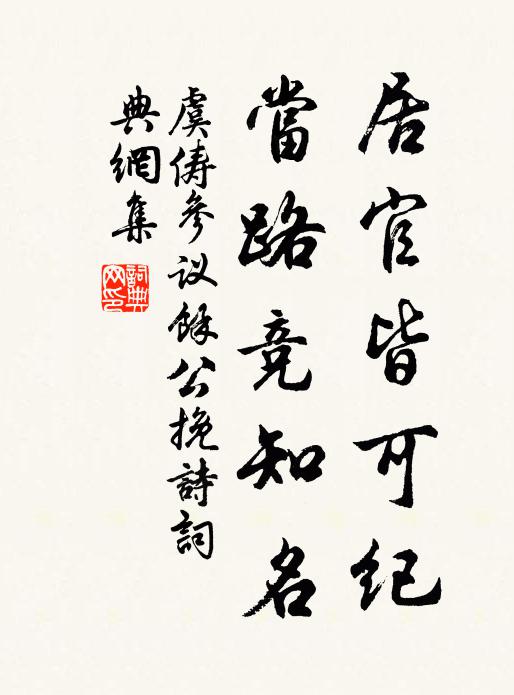 居官皆可纪
當路竞知名
虞俦参议餘公挽詩詞
典網集
詞典网印